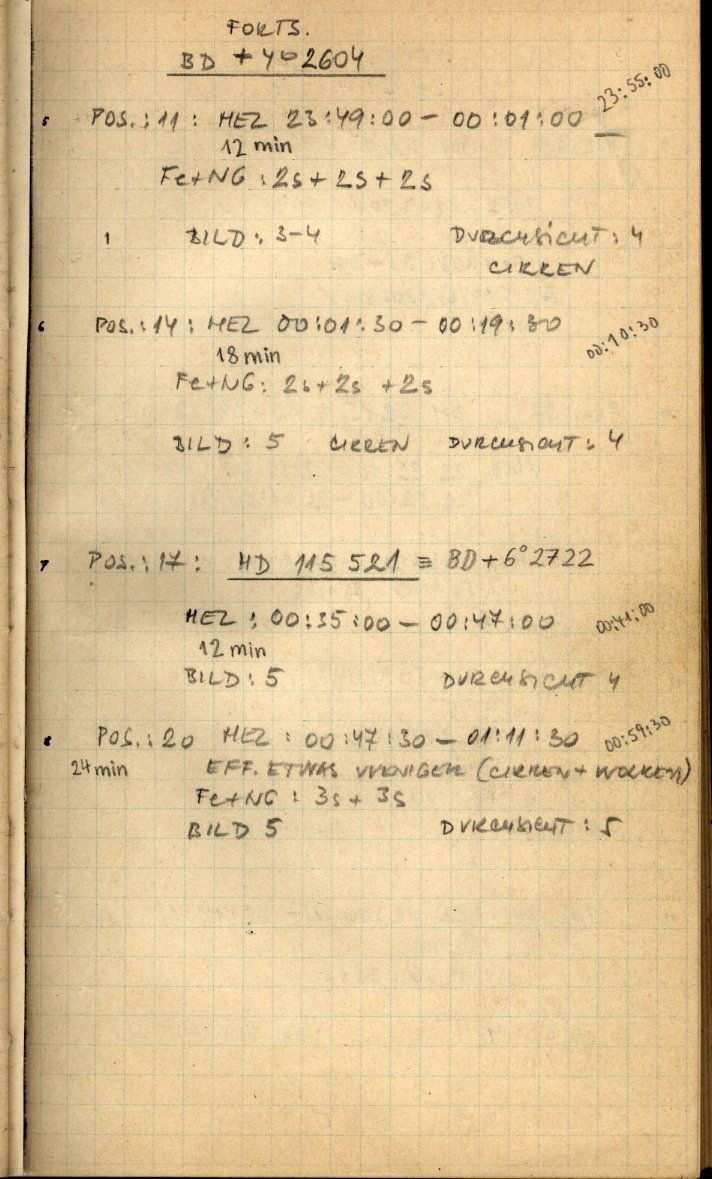 FORTS.
BD + 4° 2604
5 POS.: 11 : MEZ 23:49:00 – 00:01:00 23:55:00
12 min
Fe+NG : 2s + 2s + 2s
1 BILD : 3–4 DURCHSICHT : 4
CIRREN
6 POS.: 14 : MEZ 00:01:30 – 00:19:30 00:10:30
18 min
Fe+NG : 2s + 2s + 2s
BILD : 5 CIRREN DURCHSICHT : 4
7 POS.: 17 : HD 115 521 ≡ BD + 6° 2722
MEZ : 00:35:00 – 00:47:00 00:41:00
12 min
BILD : 5 DURCHSICHT 4
8 POS.: 20 MEZ : 00:47:30 – 01:11:30 00:59:30
24 min EFF. ETWAS WENIGER (CIRREN + WOLKEN)
Fe+NG : 3s + 3s
BILD 5 DURCHSICHT : 5